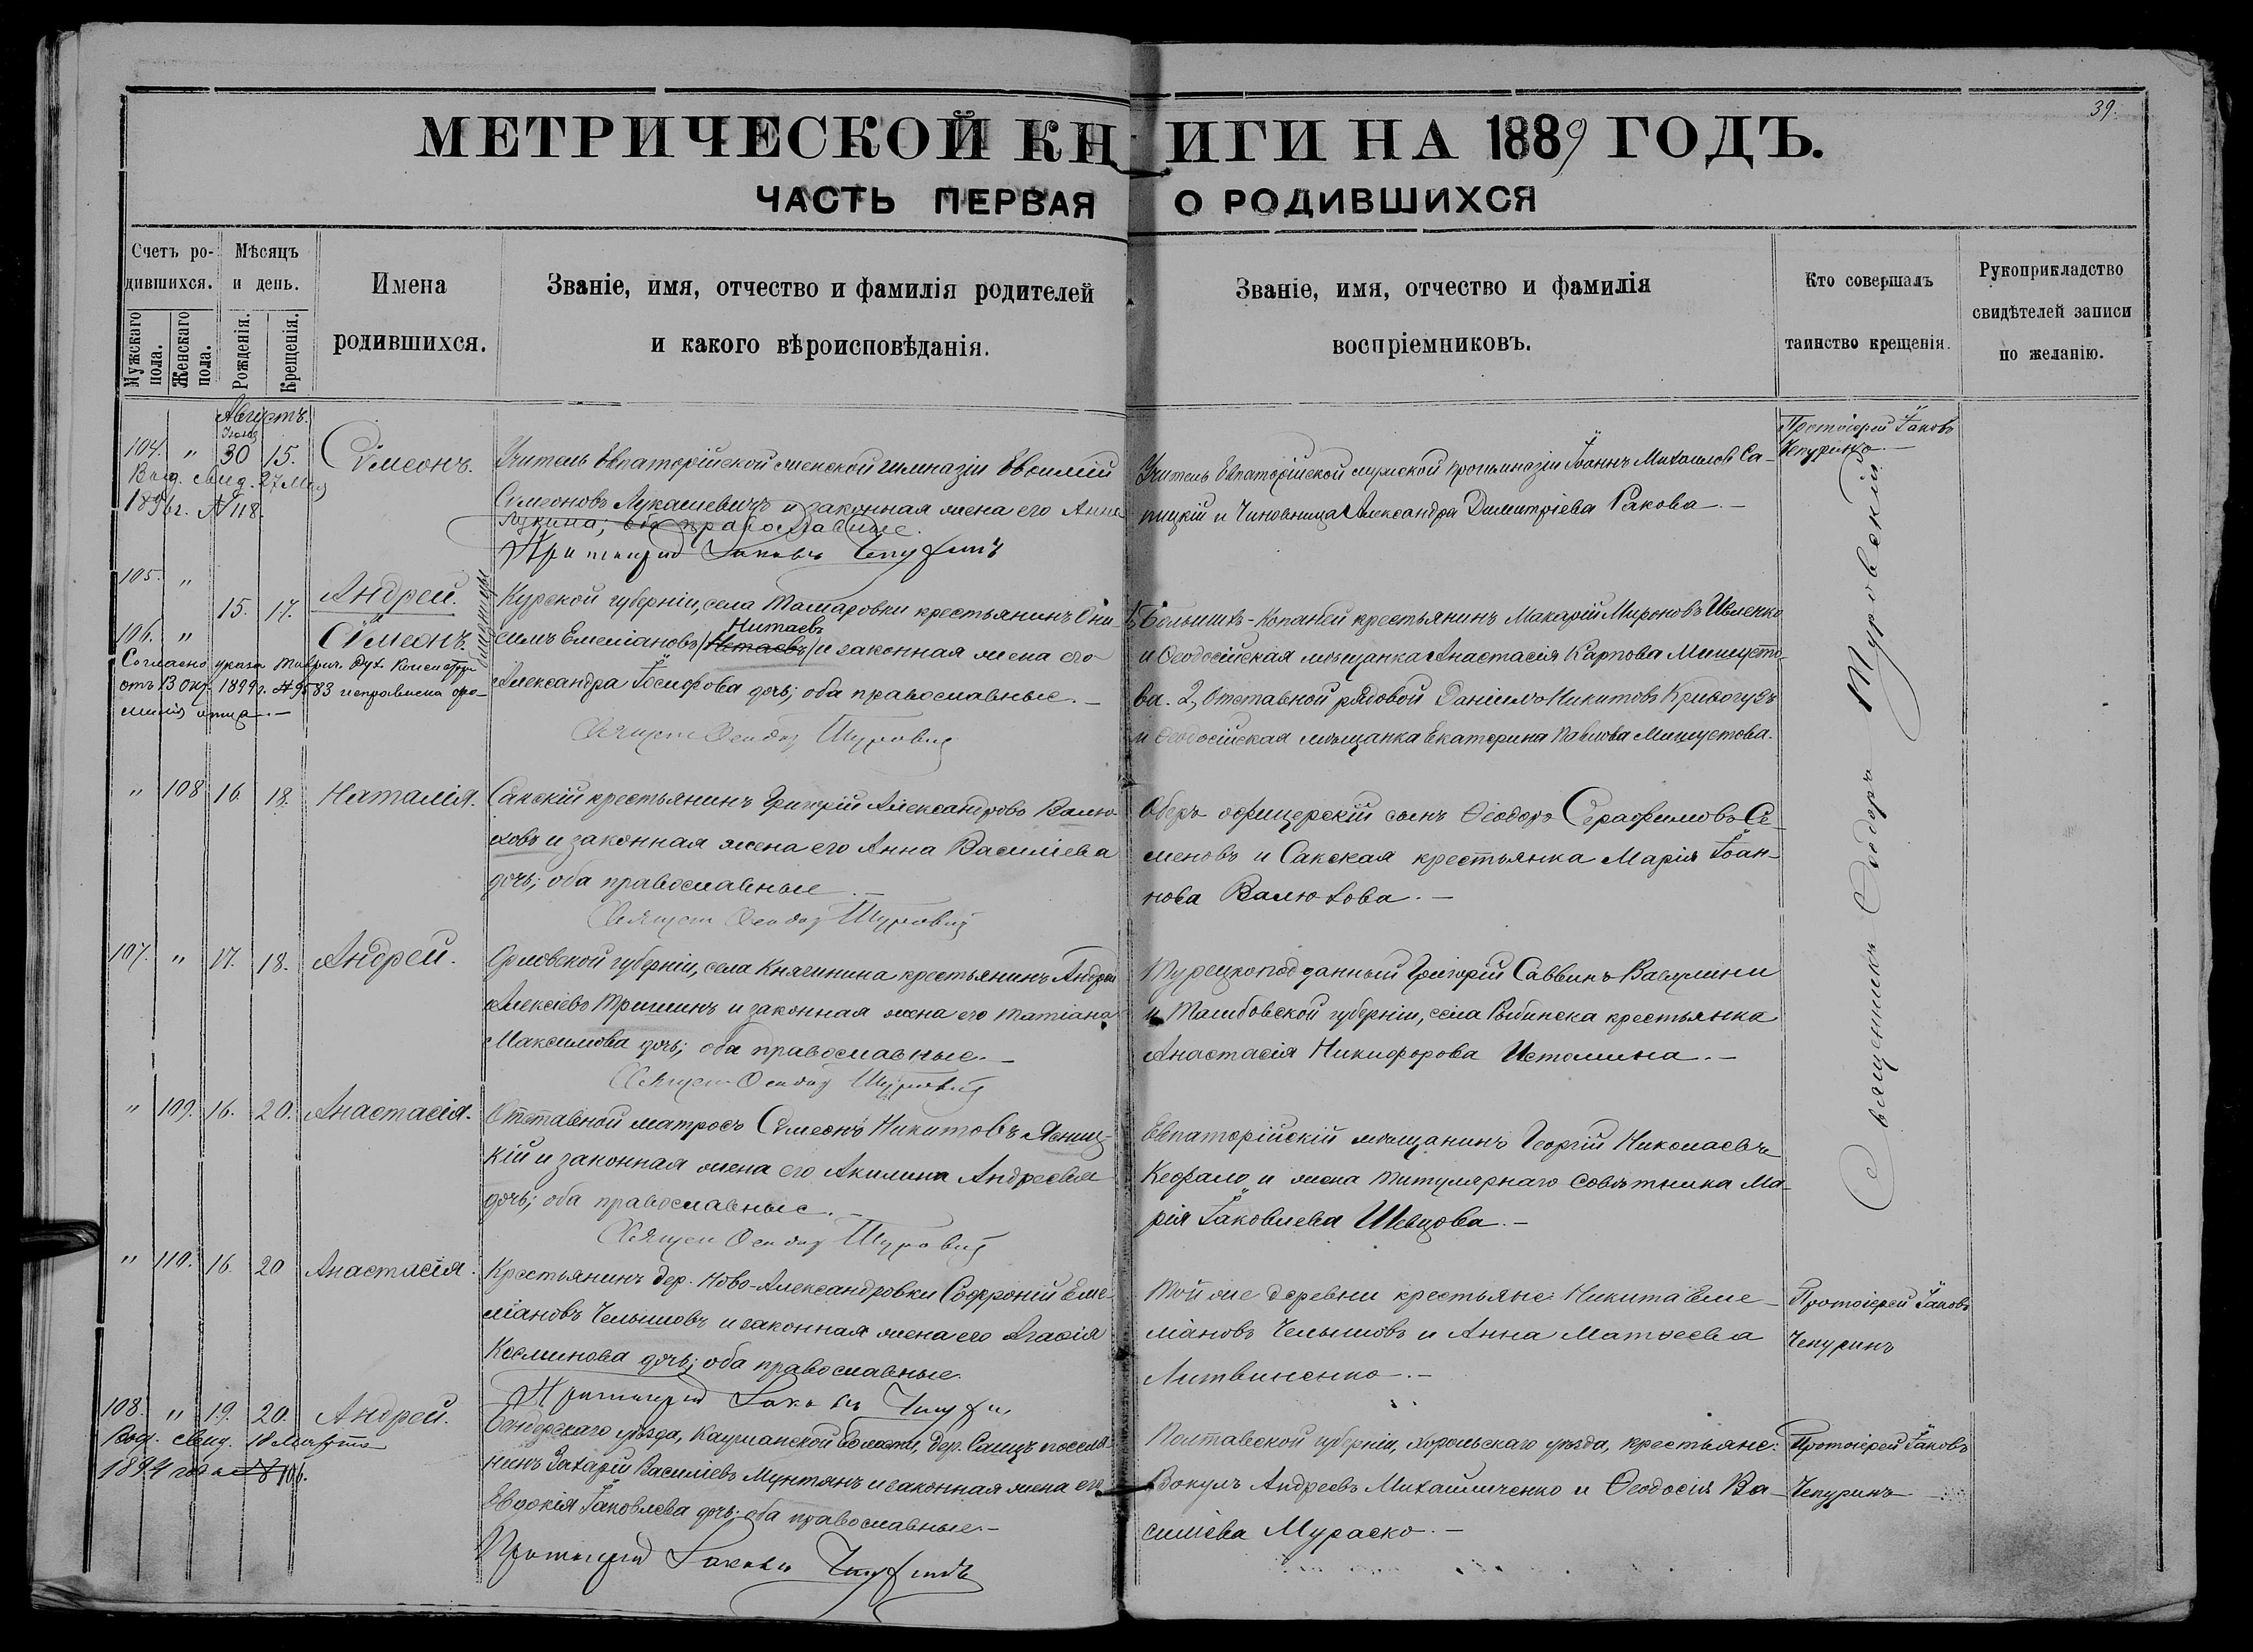 39.
МЕТРИЧЕСКОЙ КНИГИ НА 1889 ГОДЪ.
ЧАСТЬ ПЕРВАЯ О РОДИВШИХСЯ
Счетъ ро-
дившихся.
Мужскаго пола.
Женскаго пола.
Мѣсяцъ
и день.
Рожденія.
Крещенія.
Имена
родившихся.
Званіе, имя, отчество и фамилія родителей
и какого вѣроисповѣданія.
Званіе, имя, отчество и фамилія
воспріемниковъ.
Кто совершалъ
таинство крещенія.
Рукоприкладство
свидѣтелей записи
по желанію.
Августъ.
104. " Іюля 30 15. Сѵмеонъ.
Выд. свид. 27
189 г. № 118.
Учитель Евпаторійской женской гимназіи Евѳимій
Сѵмеоновъ Лукашевичъ и законная жена его Анна
Лукина; оба православные.
Протоіерей Іаковъ Чепуринъ
Учитель Евпаторійской мужской прогимназіи Іоаннъ Михаиловъ Са-
пицкій и Чиновница Александра Димитріева Ракова.—
Протоіерей Іаковъ
Чепуринъ—
105. "
15. 17. Андрей.
106. " Сѵмеонъ.
близнецы
Согласно указа Таврич. Дух. Консисторіи
отъ 13 Окт. 1899 г. № 9583 исправлена фа-
милія отца.—
Курской губерніи, села Томаровки крестьянинъ Они-
симъ Емеліановъ (Нетаевъ) Нитаевъ и законная жена его
Александра Іосифова дочь; оба православные.—
Священ Ѳеодор Туровскій
1, Большихъ-Копаней крестьянинъ Макарій Мироновъ Ивленко
и Ѳеодосійская мѣщанка Анастасія Карпова Мишусто-
ва. 2, Отставной рядовой Даніилъ Никитовъ Кривогузъ
и Ѳеодосійская мѣщанка Екатерина Павлова Мишустова.
Священникъ Ѳеодоръ Туровскій
" 108 16. 18. Наталія.
Сакскій крестьянинъ Григорій Александровъ Валю-
ховъ и законная жена его Анна Василіева
дочь; оба православные.—
Священ Ѳеодор Туровскій
Оберъ офицерскій сынъ Ѳеодоръ Серафимовъ Се-
меновъ и Сакская крестьянка Марія Іоан-
нова Валюхова.—
107. " 17. 18. Андрей.
Орловской губерніи, села Княгинина крестьянинъ Андрей
Алексіевъ Тришинъ и законная жена его Татіана
Максимова дочь; оба православные.—
Священ Ѳеодор Туровскій
Турецкоподданный Григорій Саввинъ Васулини
и Тамбовской губерніи, села Рыбинска крестьянка
Анастасія Никифорова Истомина.—
" 109. 16. 20. Анастасія.
Отставной матросъ Сѵмеонъ Никитовъ Ясниц-
кій и законная жена его Акилина Андреева
дочь; оба православные.—
Священ Ѳеодор Туровскій
Евпаторійскій мѣщанинъ Георгій Николаевъ
Кефало и жена Титулярнаго Совѣтника Ма-
рія Іаковлева Шевцова.—
" 110. 16. 20 Анастасія.
Крестьянинъ дер. Ново-Александровки Софроній Еме-
ліановъ Челышовъ и законная жена его Агаѳія
Косминова дочь; оба православные.
Протоіерей Іаковъ Чепуринъ
Той же деревни крестьяне: Никита Еме-
ліановъ Челышовъ и Анна Матѳеева
Литвиненко.—
Протоіерей Іаковъ
Чепуринъ
108. " 19. 20. Андрей.
Выд. свид. 18 Марта
1894 года № 106.
Бендерскаго уѣзда, Каушанской волости, дер. Саицъ поселя-
нинъ Захарій Василіевъ Мунтянъ и законная жена его
Евдокія Іаковлева дочь; оба православные.—
Протоіерей Іаковъ Чепуринъ
Полтавской губерніи, Хорольскаго уѣзда, крестьяне:
Вокулъ Андреевъ Михайличенко и Ѳеодосія Ва-
силіева Мураско.—
Протоіерей Іаковъ
Чепуринъ—